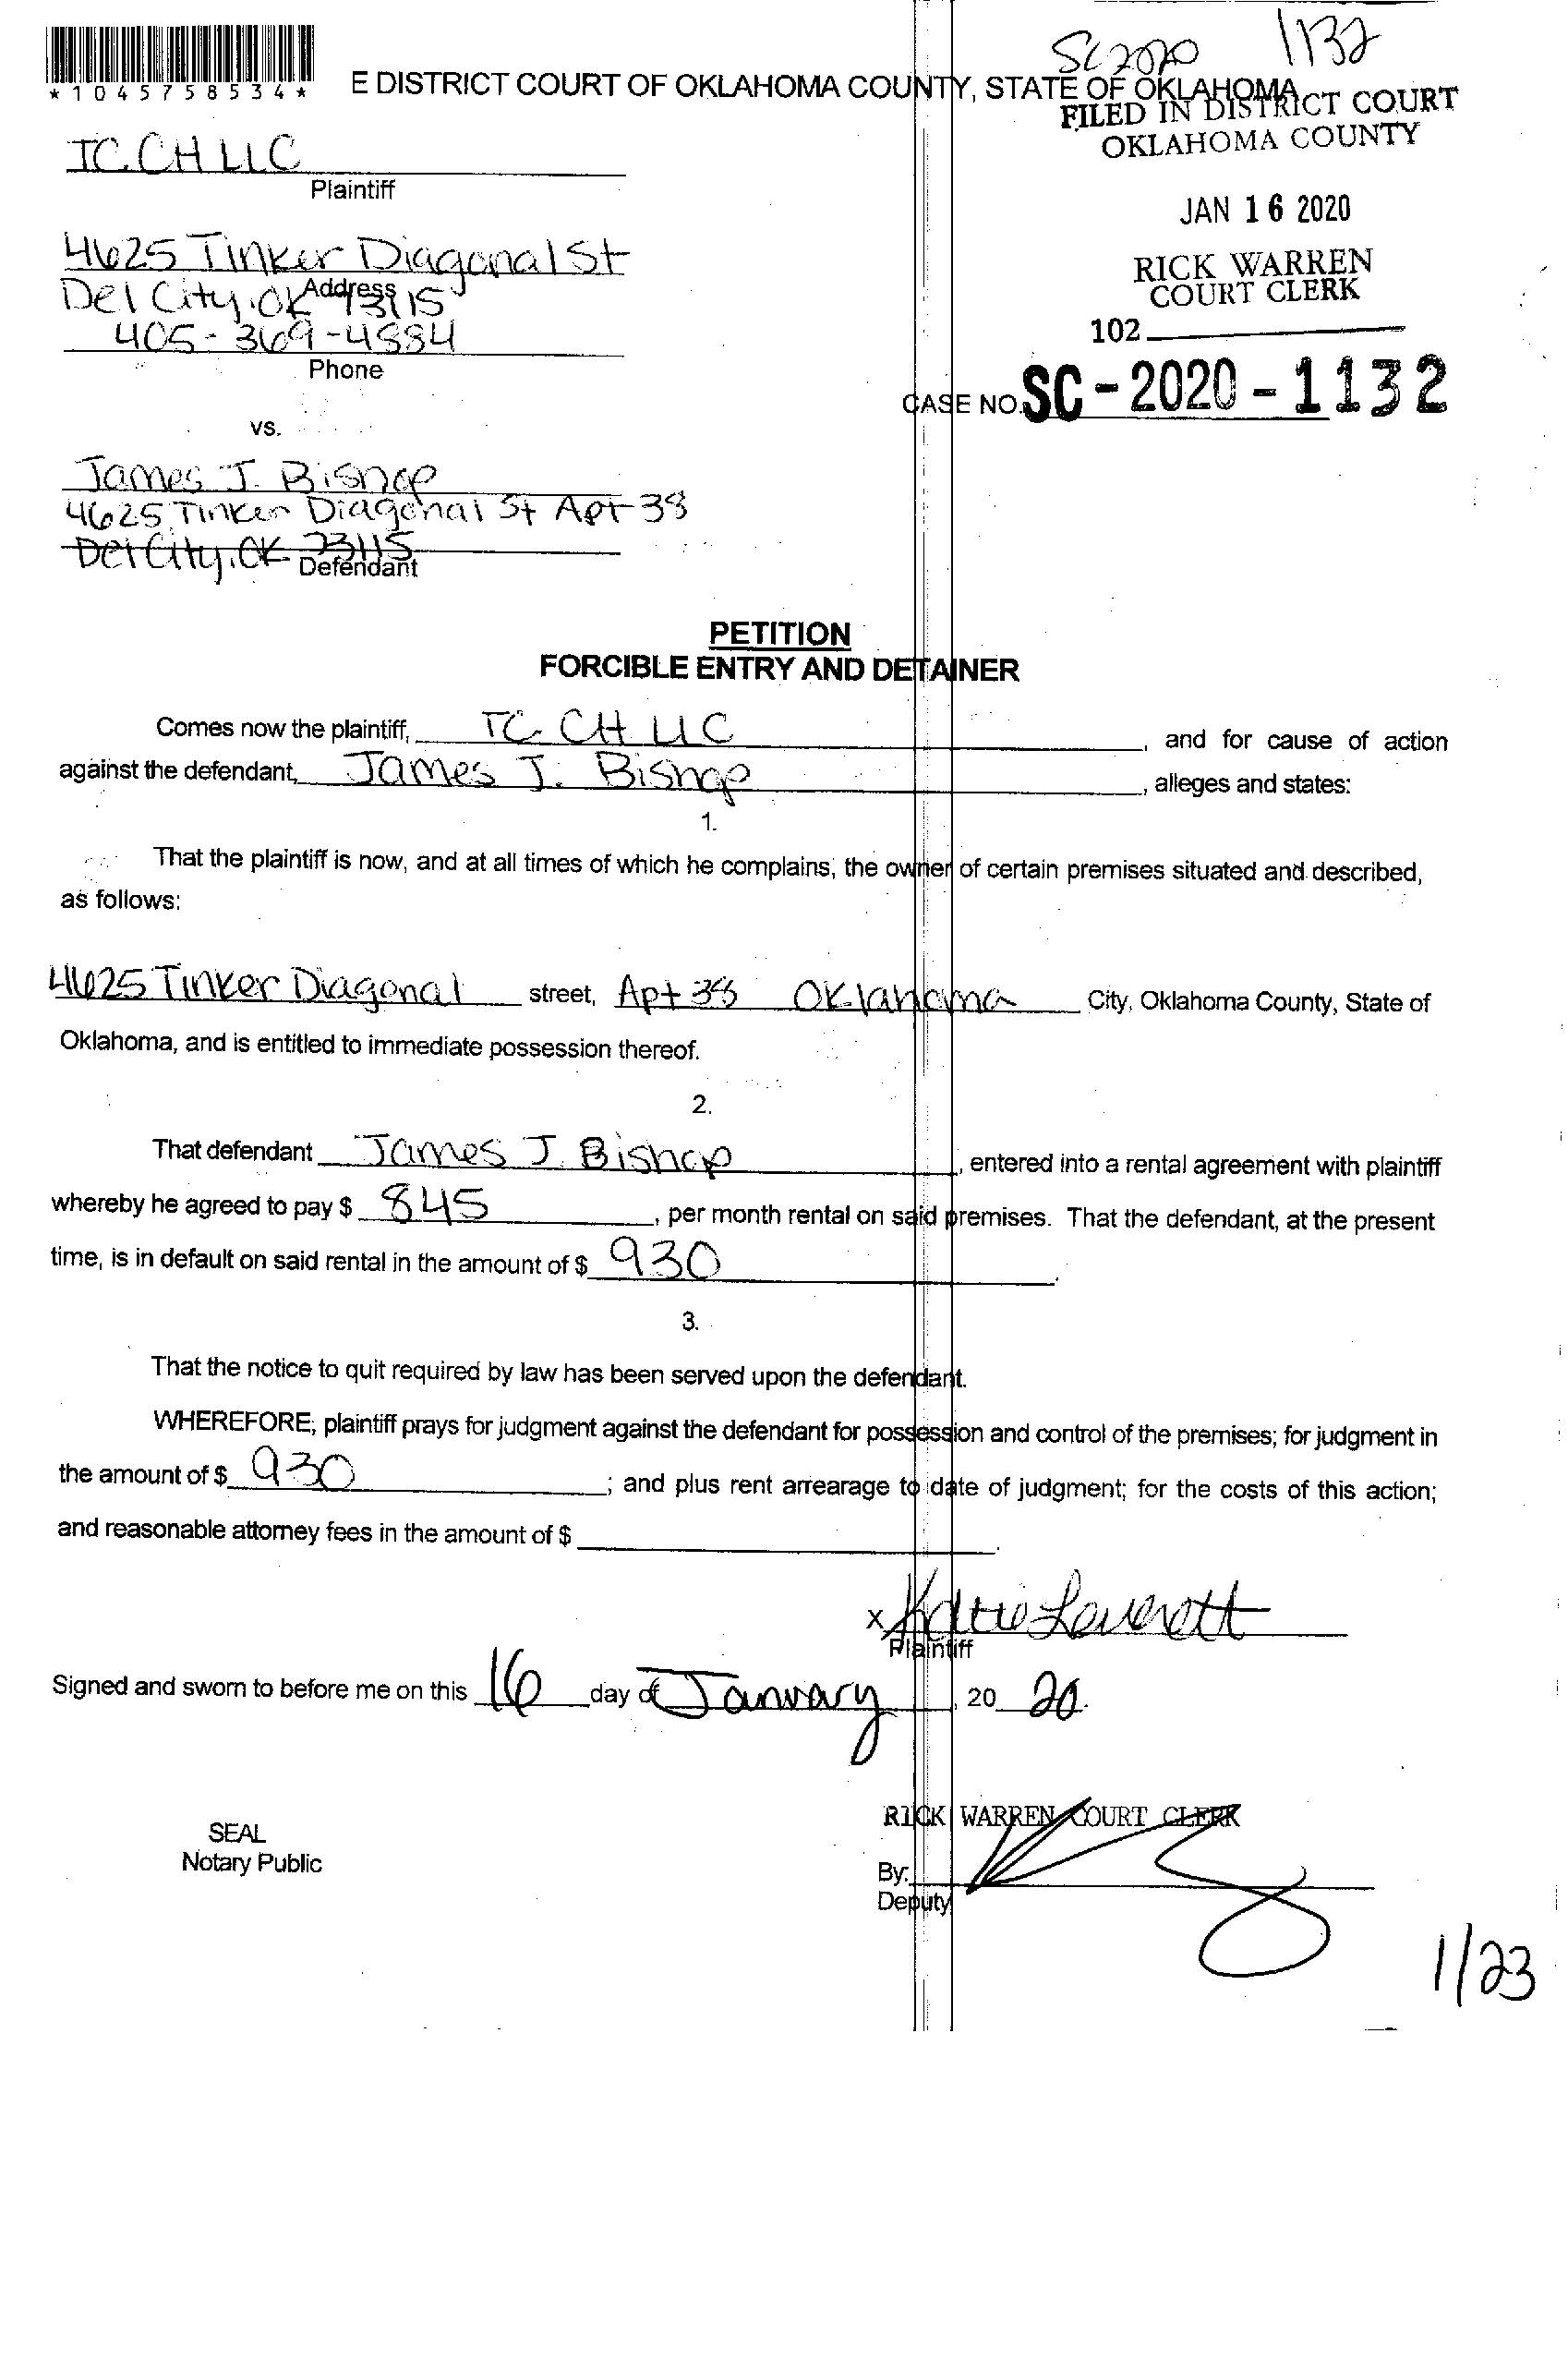 SC2020 1132
*1045758534*
E DISTRICT COURT OF OKLAHOMA COUNTY, STATE OF OKLAHOMA
FILED IN DISTRICT COURT
OKLAHOMA COUNTY
TC. CH LLC
Plaintiff
JAN 16 2020
4625 Tinker Diagonal St
Address
Del City, OK 73115
RICK WARREN
COURT CLERK
405-369-4884
102
Phone
CASE NO. SC-2020-1132
vs.
James J. Bishop
4625 Tinker Diagonal St Apt 38
Del City, OK 73115
Defendant
PETITION
FORCIBLE ENTRY AND DETAINER
Comes now the plaintiff, TC. CH LLC, and for cause of action
against the defendant, James J. Bishop, alleges and states:
1.
That the plaintiff is now, and at all times of which he complains, the owner of certain premises situated and described,
as follows:
4625 Tinker Diagonal street, Apt 38 Oklahoma City, Oklahoma County, State of
Oklahoma, and is entitled to immediate possession thereof.
2.
That defendant James J. Bishop, entered into a rental agreement with plaintiff
whereby he agreed to pay $ 845, per month rental on said premises. That the defendant, at the present
time, is in default on said rental in the amount of $ 930.
3.
That the notice to quit required by law has been served upon the defendant.
WHEREFORE, plaintiff prays for judgment against the defendant for possession and control of the premises; for judgment in
the amount of $ 930; and plus rent arrearage to date of judgment; for the costs of this action;
and reasonable attorney fees in the amount of $
x Katie Leverett
Plaintiff
Signed and sworn to before me on this 16 day of January, 20 20.
RICK WARREN COURT CLERK
SEAL
Notary Public
By:
Deputy
1/23